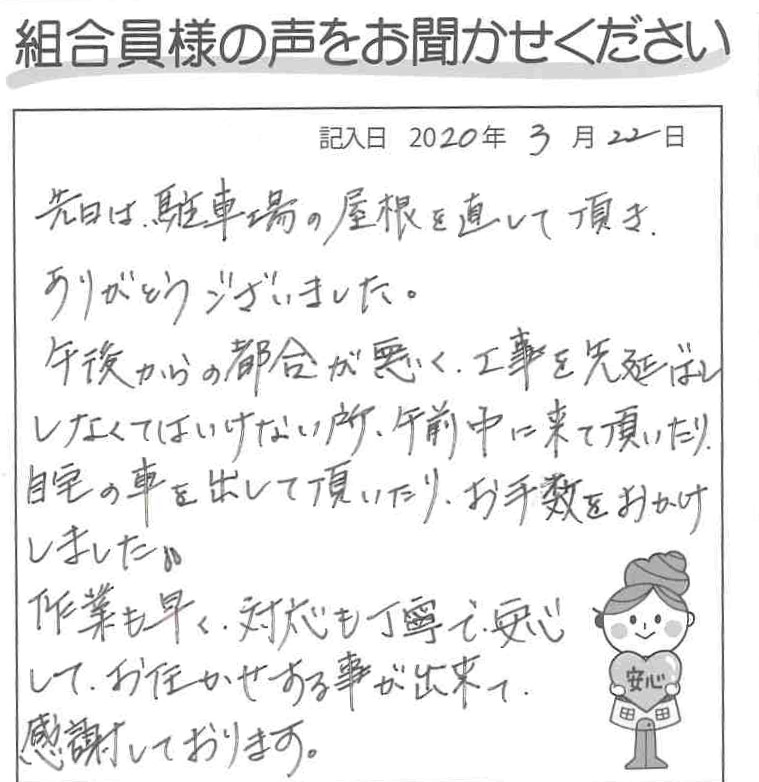 組合員様の声をお聞かせください
記入日 2020年 3月 22日
先日は、駐車場の屋根を直して頂き、
ありがとうございました。
午後からの都合が悪く、工事を先延ばし
しなくてはいけない所、午前中に来て頂いたり、
自宅の車を出して頂いたり、お手数をおかけ
しました。
作業も早く、対応も丁寧で、安心
して、お任かせする事が出来て、
感謝しております。
安心